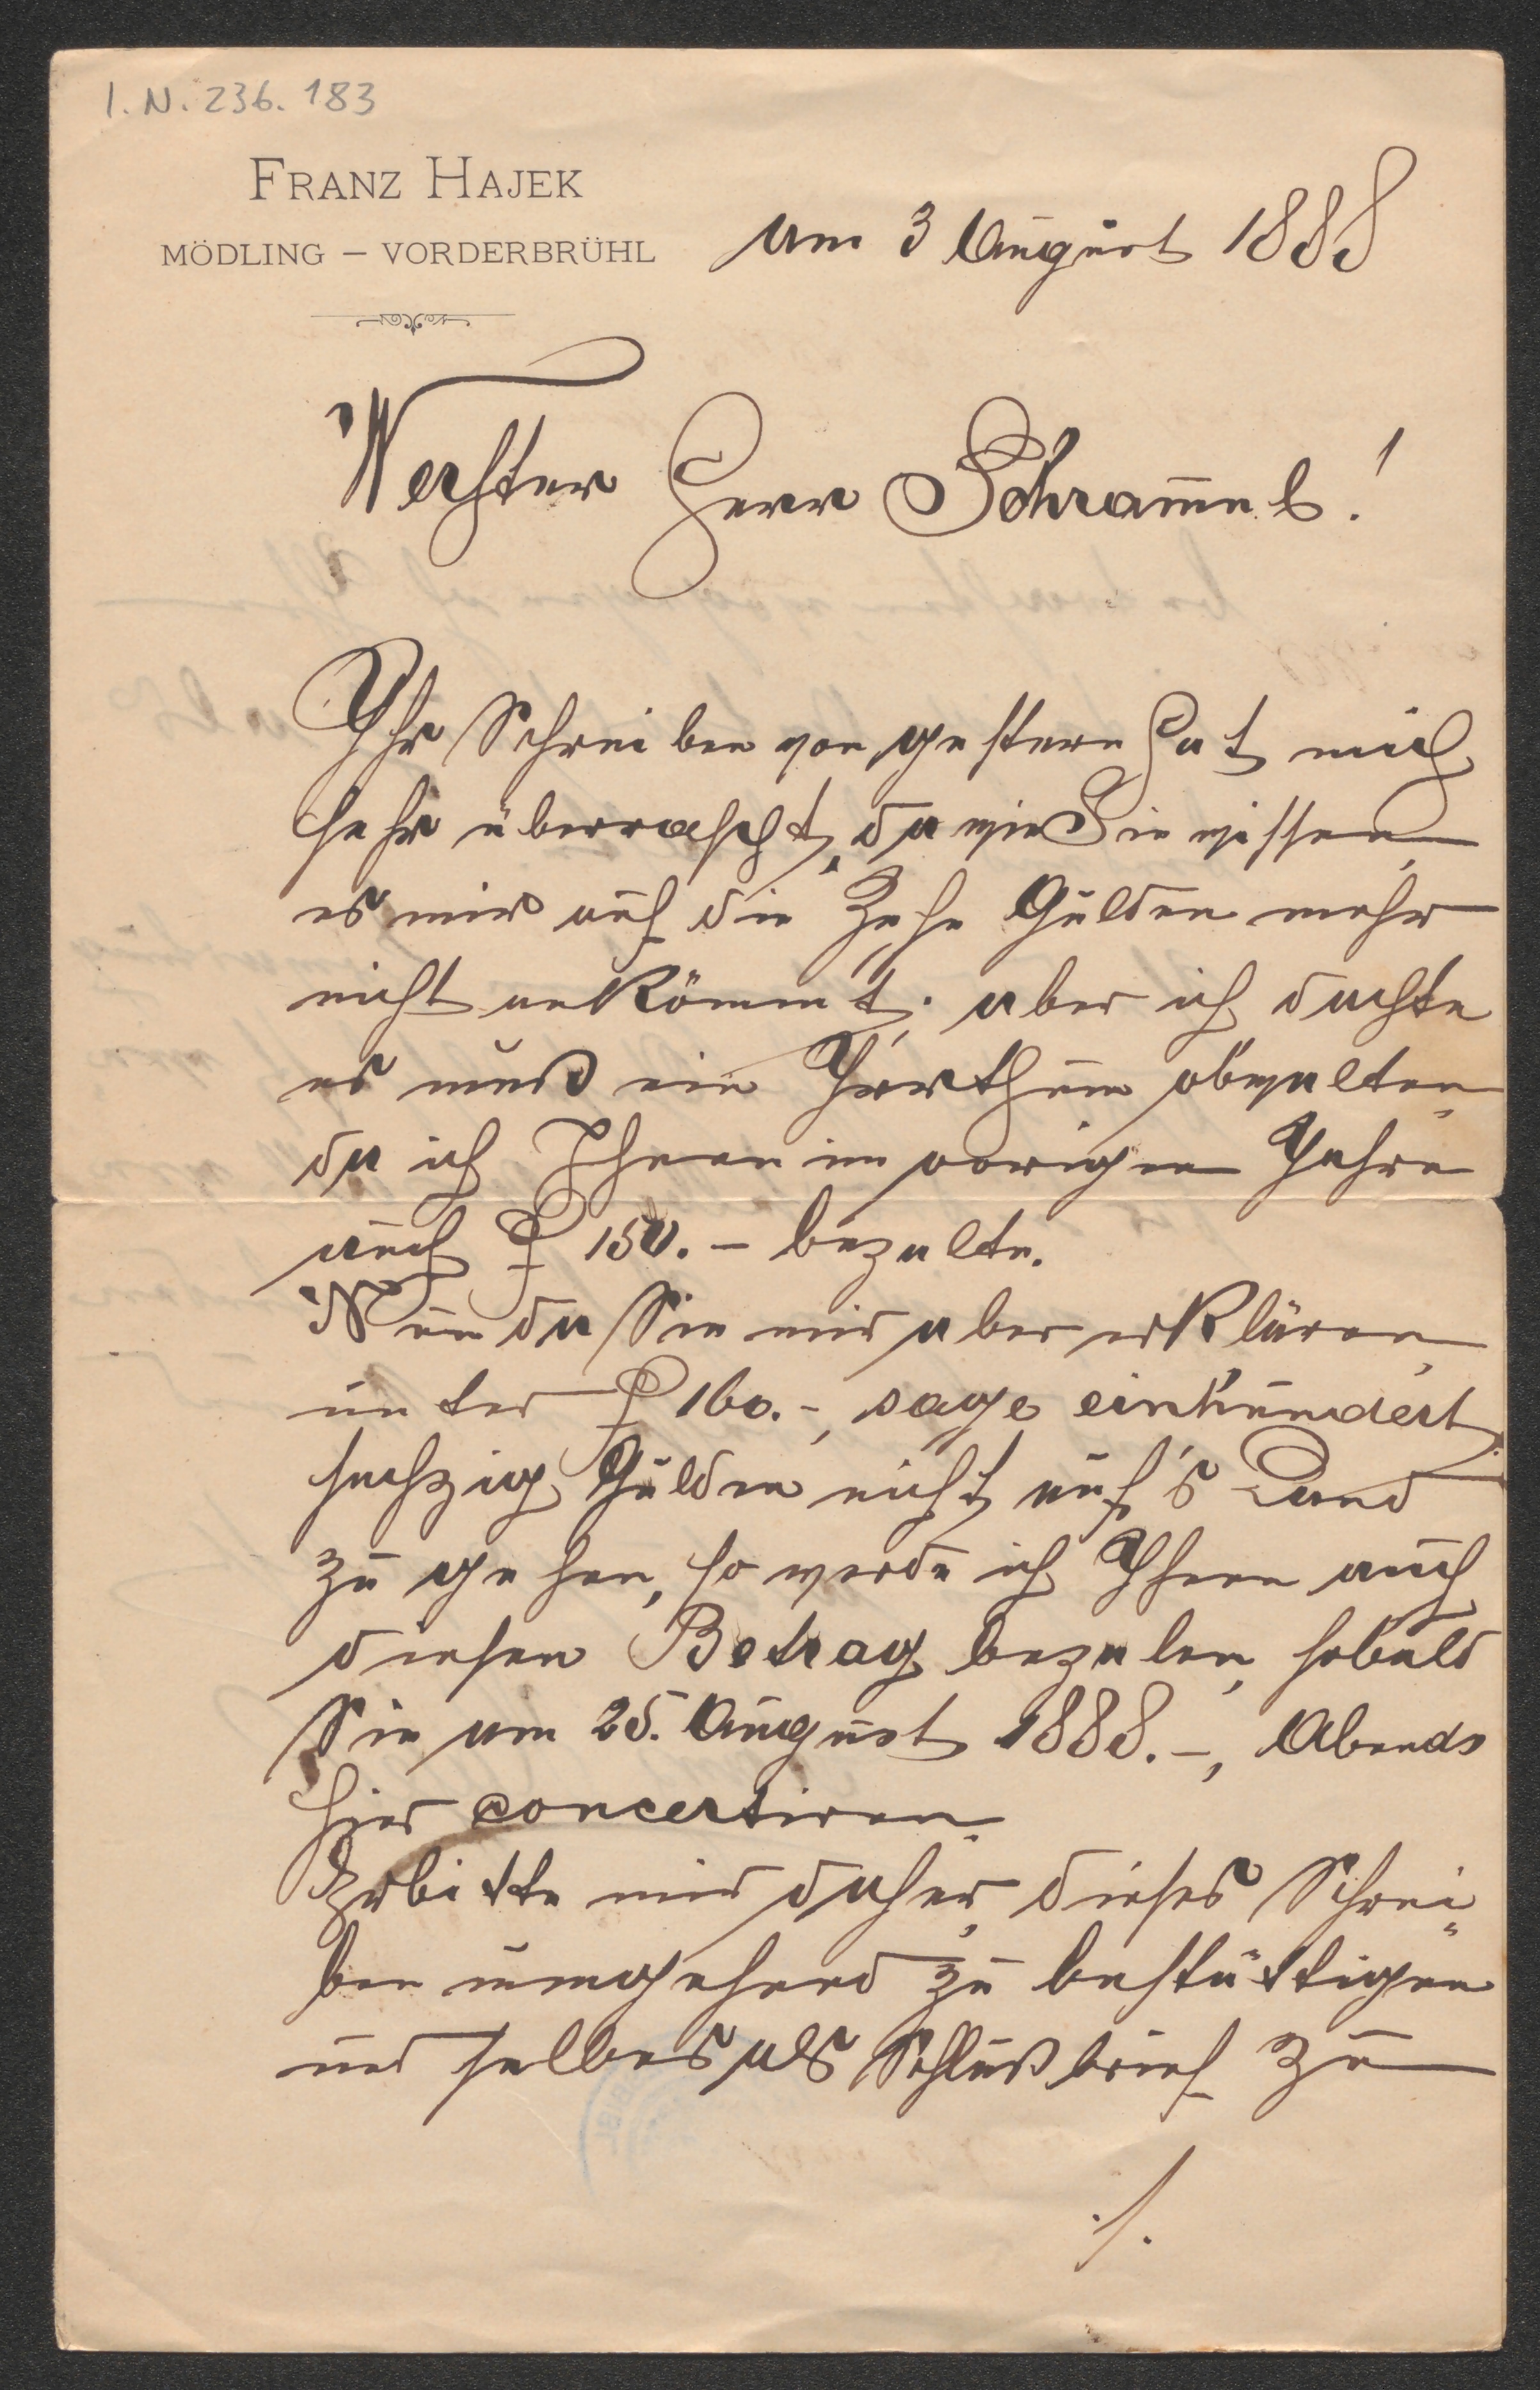 I. N. 236.183
FRANZ HAJEK
MÖDLING – VORDERBRÜHL
am 3 August 1888
Werther Herr Schram̅el!
Ihr Schreiben von gestern hat mich
sehr überrascht, da wie Sie wissen,
es mir auf die Zehn Gulden mehr
nicht ankömmt; aber ich dachte
es muß ein Irrthum obwalten
da ich Ihnen im vorigen Jahre
auch f 150.– bezalte.
Nun da Sie mir aber erklären,
unter f 160.–, sage einhundert
sechzig Gulden nicht auf's Land
zu gehen, so werde ich Ihnen auch
diesen Betrag bezalen, sobald
Sie am 25. August 1888.–, Abends
hier concertiren.
Erbitte mir daher, dieses Schrei„
ben umgehend zu bestättigen
und selbes als Schlußbrief zu
./.